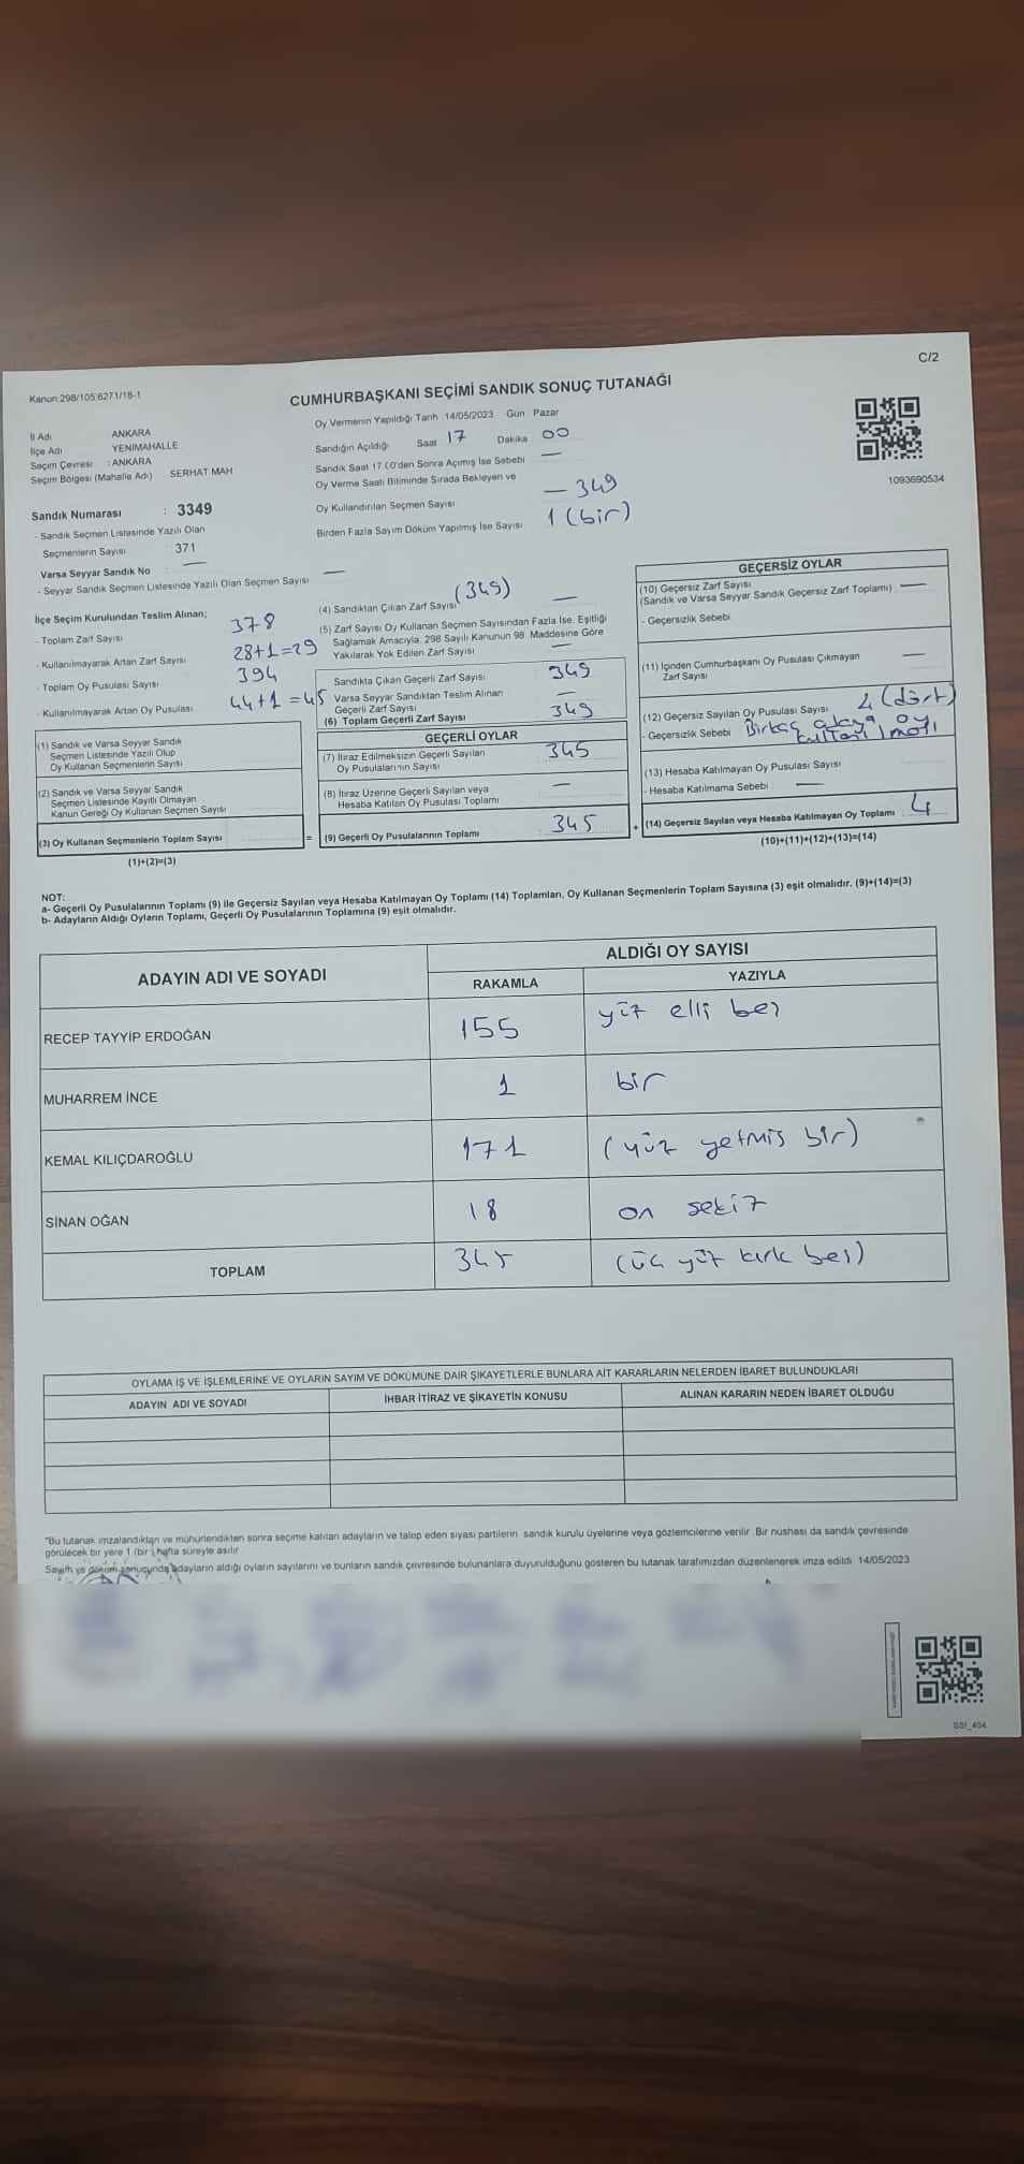 C/2
Kanun:298/105:6271/18-1
CUMHURBAŞKANI SEÇİMİ SANDIK SONUÇ TUTANAĞI
İl Adı : ANKARA
İlçe Adı : YENİMAHALLE
Seçim Çevresi : ANKARA
Seçim Bölgesi (Mahalle Adı) SERHAT MAH
Sandık Numarası : 3349
- Sandık Seçmen Listesinde Yazılı Olan
Seçmenlerin Sayısı 371
Varsa Seyyar Sandık No —
- Seyyar Sandık Seçmen Listesinde Yazılı Olan Seçmen Sayısı —
Oy Vermenin Yapıldığı Tarih 14/05/2023 Gün Pazar
Sandığın Açıldığı Saat 17 Dakika 00
Sandık Saat 17.00'den Sonra Açmış İse Sebebi —
Oy Verme Saati Bitiminde Sırada Bekleyen ve
Oy Kullandırılan Seçmen Sayısı — 349
Birden Fazla Sayım Döküm Yapılmış İse Sayısı 1 (bir)
1093690534
İlçe Seçim Kurulundan Teslim Alınan;
- Toplam Zarf Sayısı 378
- Kullanılmayarak Artan Zarf Sayısı 28+1=29
- Toplam Oy Pusulası Sayısı 394
- Kullanılmayarak Artan Oy Pusulası 44+1=45
(1) Sandık ve Varsa Seyyar Sandık
Seçmen Listesinde Yazılı Olup
Oy Kullanan Seçmenlerin Sayısı
(2) Sandık ve Varsa Seyyar Sandık
Seçmen Listesinde Kayıtlı Olmayan
Kanun Gereği Oy Kullanan Seçmen Sayısı
(3) Oy Kullanan Seçmenlerin Toplam Sayısı =
(1)+(2)=(3)
(4) Sandıktan Çıkan Zarf Sayısı (349) —
(5) Zarf Sayısı Oy Kullanan Seçmen Sayısından Fazla İse, Eşitliği
Sağlamak Amacıyla, 298 Sayılı Kanunun 98. Maddesine Göre
Yakılarak Yok Edilen Zarf Sayısı —
Sandıkta Çıkan Geçerli Zarf Sayısı 349
Varsa Seyyar Sandıktan Teslim Alınan
Geçerli Zarf Sayısı —
(6) Toplam Geçerli Zarf Sayısı 349
GEÇERLİ OYLAR
(7) İtiraz Edilmeksizin Geçerli Sayılan
Oy Pusulalarının Sayısı 345
(8) İtiraz Üzerine Geçerli Sayılan veya
Hesaba Katılan Oy Pusulası Toplamı —
(9) Geçerli Oy Pusulalarının Toplamı 345 +
GEÇERSİZ OYLAR
(10) Geçersiz Zarf Sayısı —
(Sandık ve Varsa Seyyar Sandık Geçersiz Zarf Toplamı)
- Geçersizlik Sebebi
(11) İçinden Cumhurbaşkanı Oy Pusulası Çıkmayan
Zarf Sayısı —
(12) Geçersiz Sayılan Oy Pusulası Sayısı 4 (dört)
- Geçersizlik Sebebi Birkaç adaya oy
kullanılması
(13) Hesaba Katılmayan Oy Pusulası Sayısı
- Hesaba Katılmama Sebebi —
(14) Geçersiz Sayılan veya Hesaba Katılmayan Oy Toplamı 4
(10)+(11)+(12)+(13)=(14)
NOT:
a- Geçerli Oy Pusulalarının Toplamı (9) ile Geçersiz Sayılan veya Hesaba Katılmayan Oy Toplamı (14) Toplamları, Oy Kullanan Seçmenlerin Toplam Sayısına (3) eşit olmalıdır. (9)+(14)=(3)
b- Adayların Aldığı Oyların Toplamı, Geçerli Oy Pusulalarının Toplamına (9) eşit olmalıdır.
ADAYIN ADI VE SOYADI ALDIĞI OY SAYISI
RAKAMLA YAZIYLA
RECEP TAYYİP ERDOĞAN 155 yüz elli beş
MUHARREM İNCE 1 bir
KEMAL KILIÇDAROĞLU 171 (yüz yetmiş bir)
SİNAN OĞAN 18 on sekiz
TOPLAM 345 (üç yüz kırk beş)
OYLAMA İŞ VE İŞLEMLERİNE VE OYLARIN SAYIM VE DÖKÜMÜNE DAİR ŞİKAYETLERLE BUNLARA AİT KARARLARIN NELERDEN İBARET BULUNDUKLARI
ADAYIN ADI VE SOYADI İHBAR İTİRAZ VE ŞİKAYETİN KONUSU ALINAN KARARIN NEDEN İBARET OLDUĞU
"Bu tutanak imzalandıktan ve mühürlendikten sonra seçime katılan adayların ve talep eden siyasi partilerin sandık kurulu üyelerine veya gözlemcilerine verilir. Bir nüshası da sandık çevresinde
görülecek bir yere 1 (bir) hafta süreyle asılır.
Sayım ve döküm sonucunda adayların aldığı oyların sayılarını ve bunların sandık çevresinde bulunanlara duyurulduğunu gösteren bu tutanak tarafımızdan düzenlenerek imza edildi. 14/05/2023